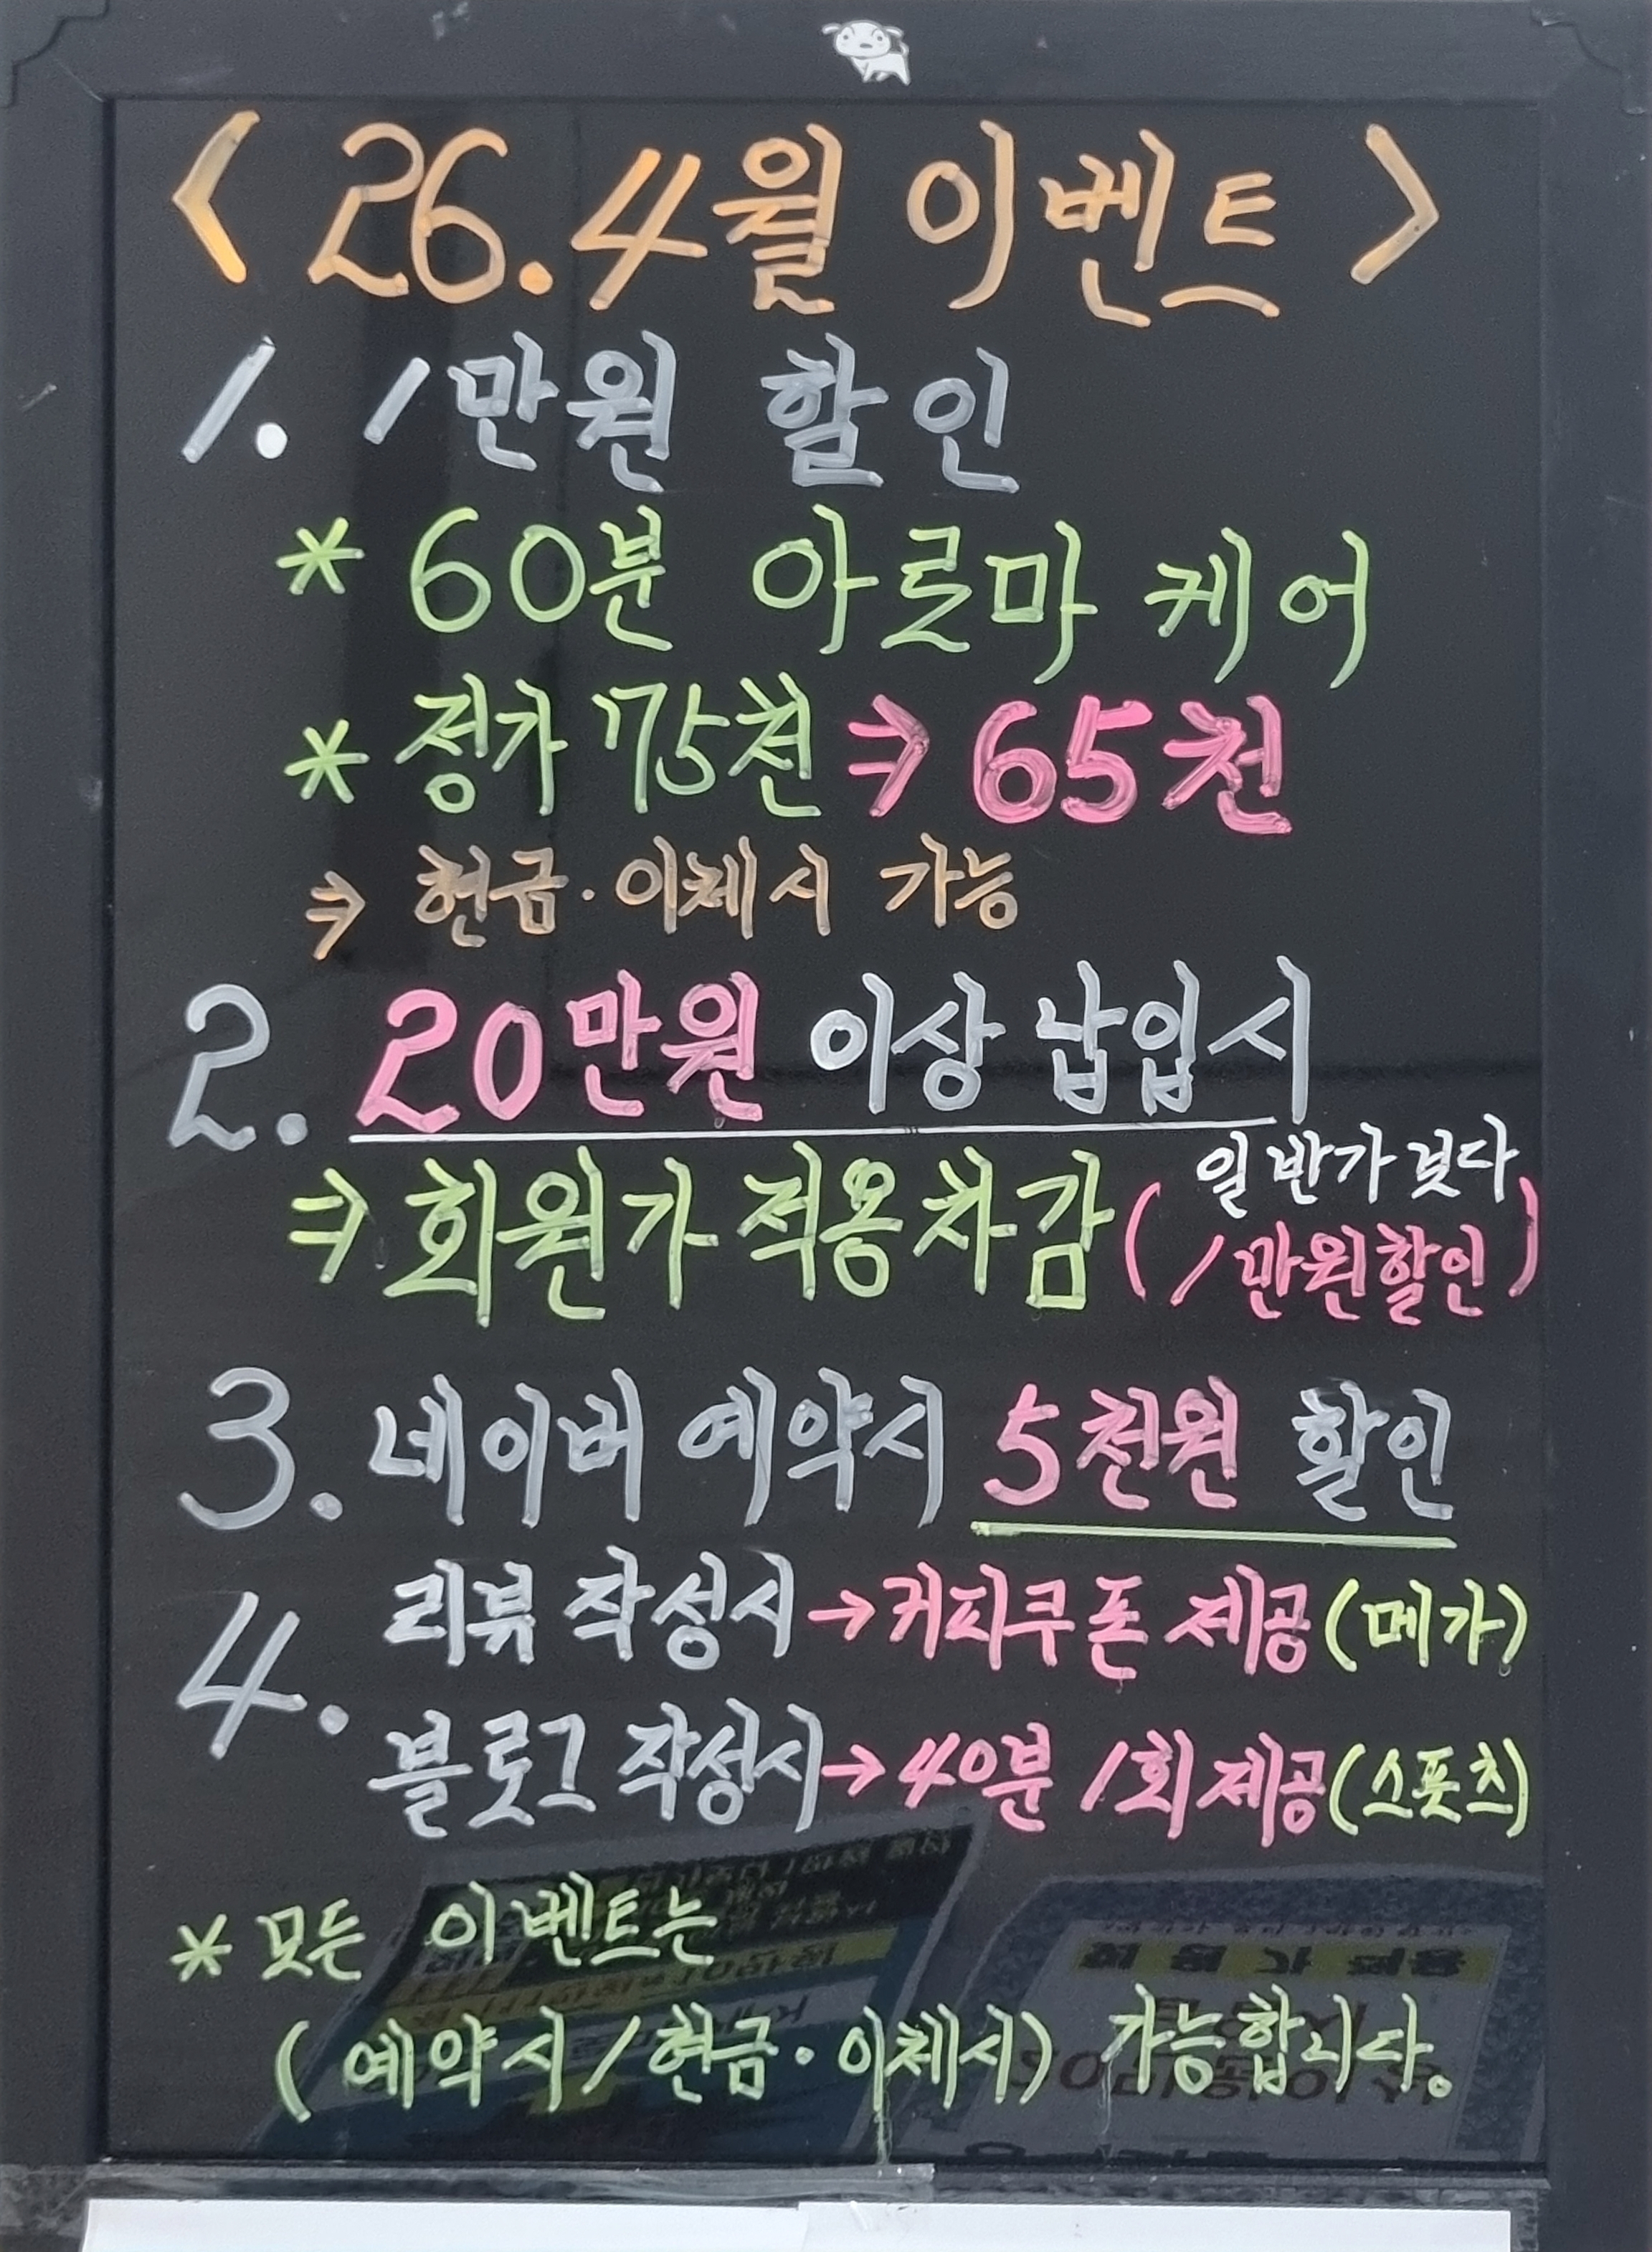 < 26.4월 이벤트 >
1. 1만원 할인
* 60분 아로마 케어
* 정가 75천 ⇒ 65천
⇒ 현금·이체시 가능
2. 20만원 이상 납입시
⇒ 회원가 적용차감 (일반가보다 1만원할인)
3. 네이버 예약시 5천원 할인
4. 리뷰 작성시 → 커피쿠폰 제공 (메가)
블로그 작성시 → 40분 1회 제공 (스포츠)
* 모든 이벤트는
(예약시/현금·이체시) 가능합니다.